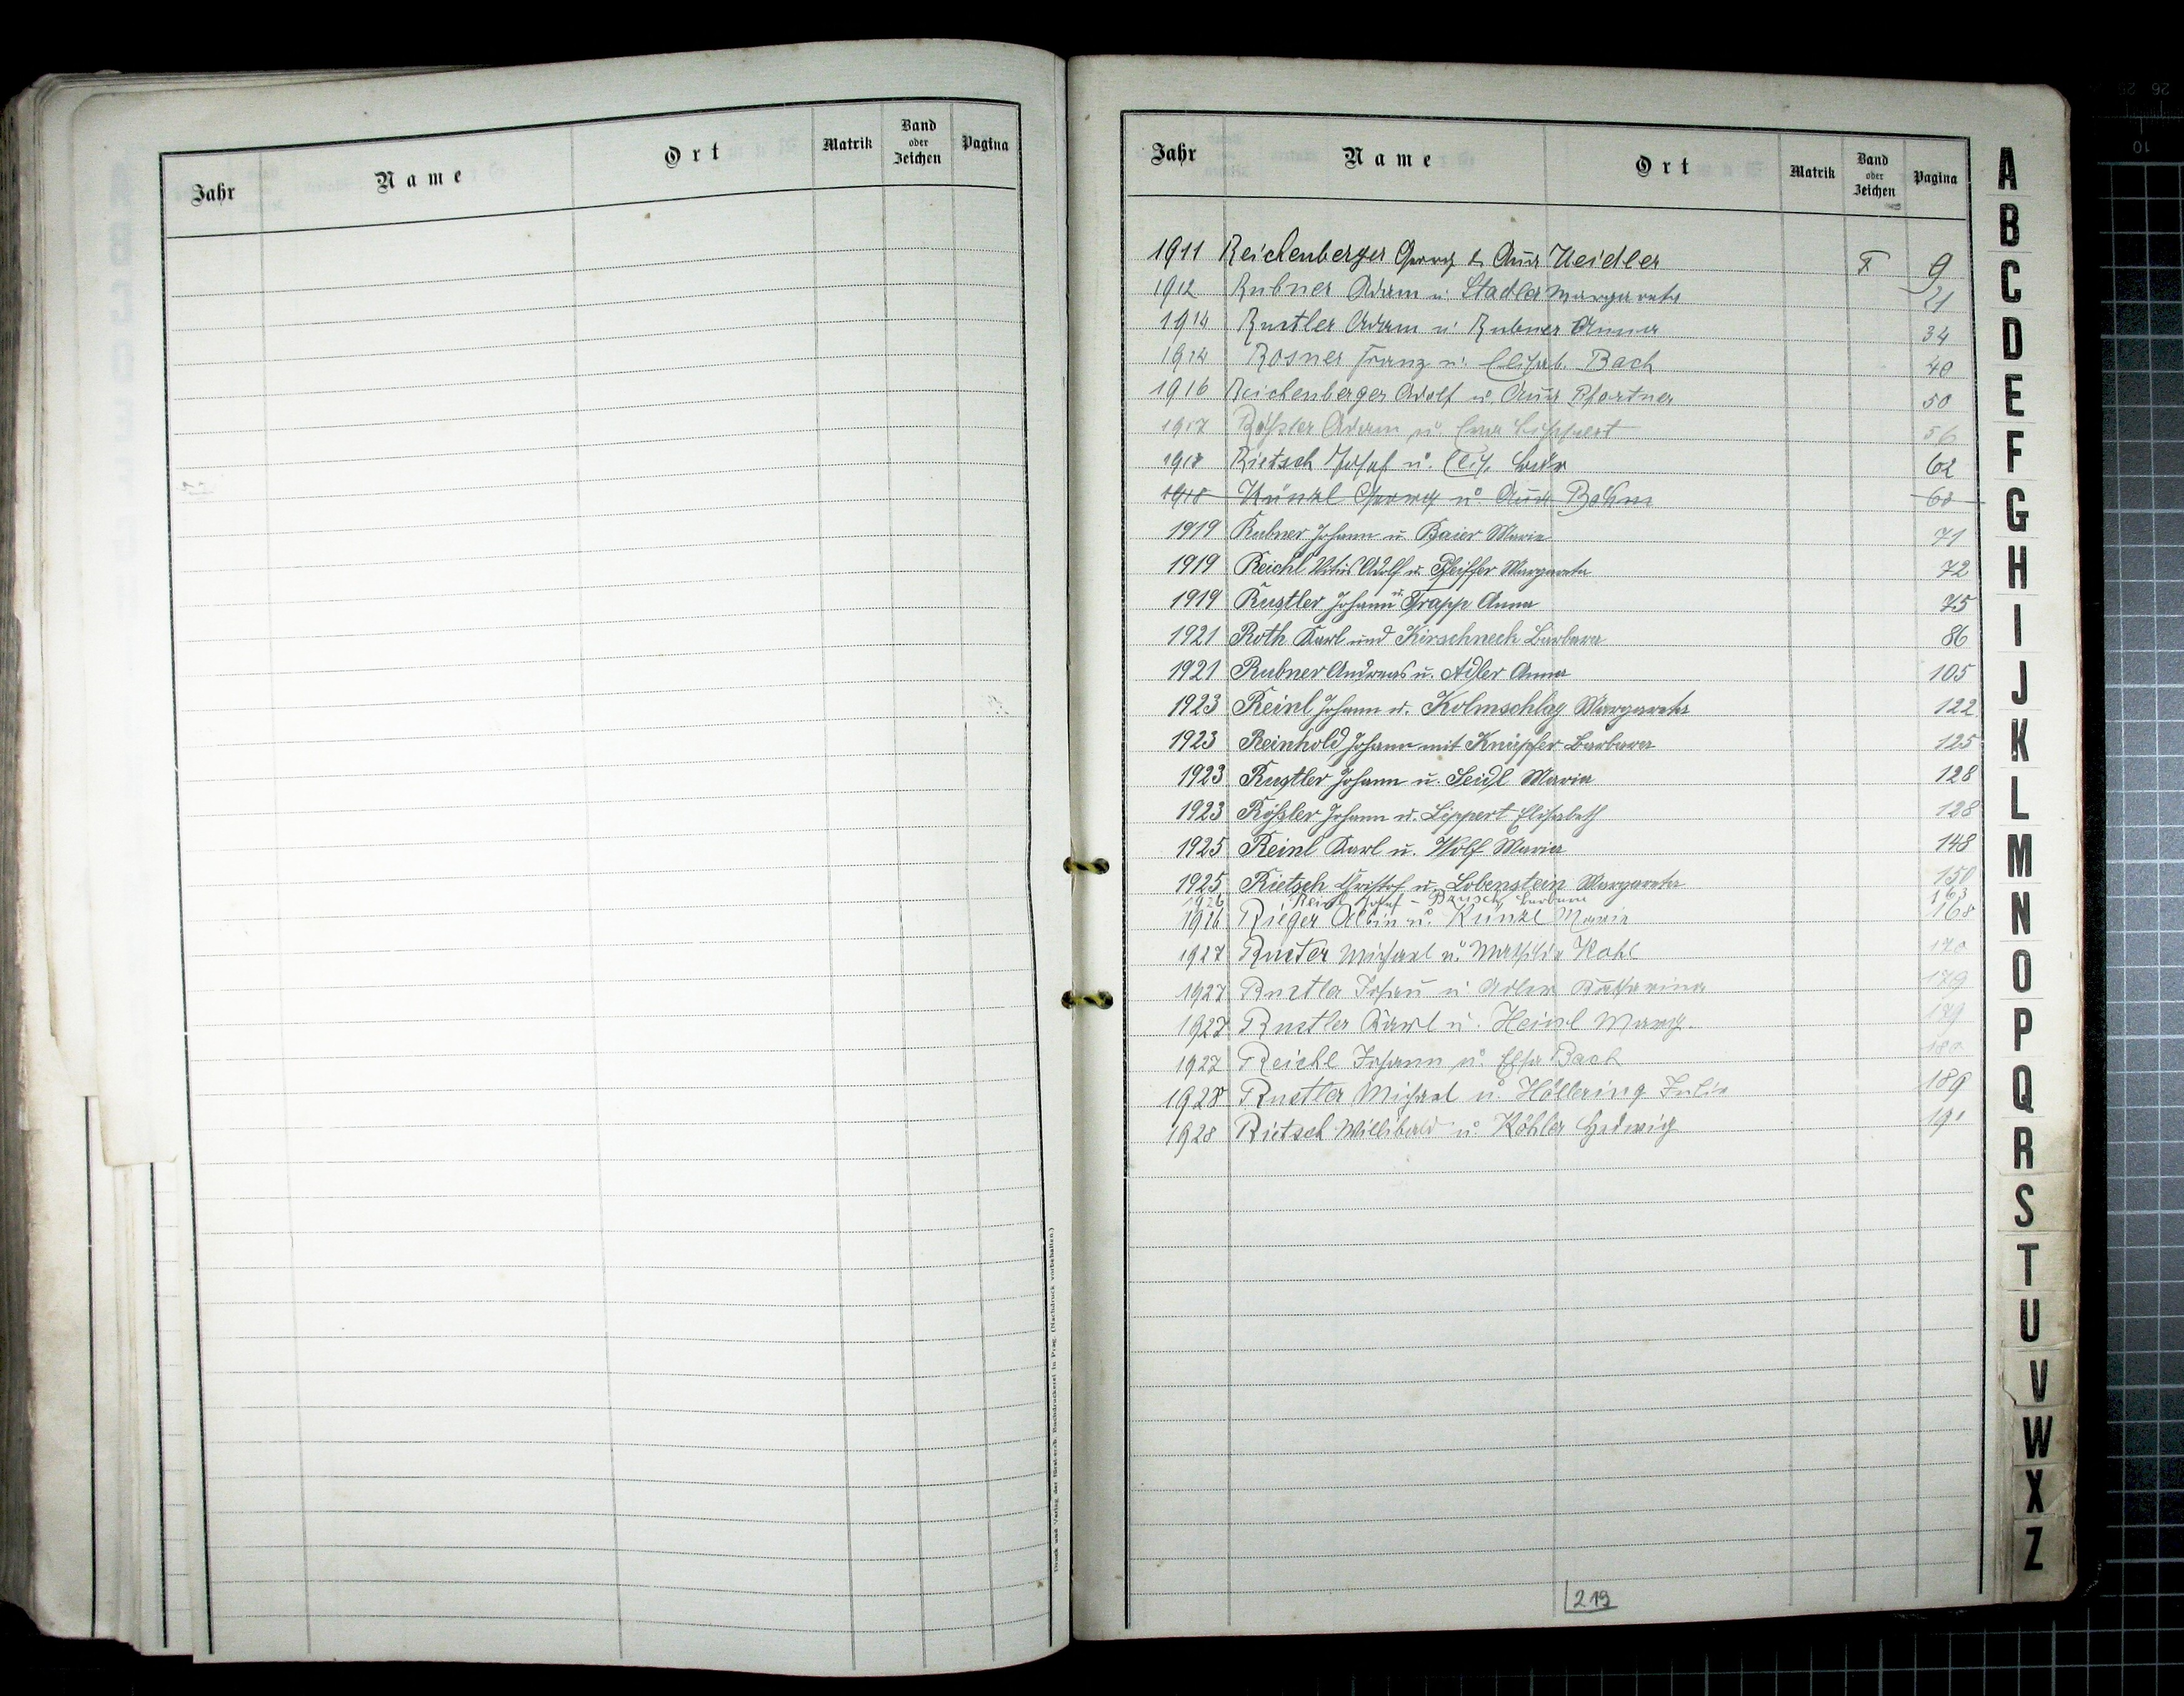 Jahr Name Ort Matrik Band oder Zeichen Pagina
Jahr Name Ort Matrik Band oder Zeichen Pagina
1911 Reichenberger Georg & Anna Neidler F 9
1912 Rubner Adam u. Stadler Margareta 21
1914 Rustler Adam u. Rubner Anna 34
1914 Rosner Franz u. Elisab. Bach 40
1916 Reichenberger Adolf u. Anna Pfortner 50
1917 Rößler Adam u. Eva Lippert 56
1918 Rietsch Josef u. Elis. 62
1918 Künzl Georg u. Anna Böhm 63
1919 Rubner Johann u. Baier Maria 71
1919 Reichl Adolf u. Pfeiffer Margareta 72
1919 Rustler Johann u. Trapp Anna 75
1921 Roth Karl und Kirschneck Barbara 86
1921 Rubner Andreas u. Adler Anna 105
1923 Reinl Johann u. Kolmschlag Margareta 122
1923 Reinhold Johann mit Knüpfer Barbara 125
1923 Rustler Johann u. Seidl Maria 128
1923 Rößler Johann u. Lippert Elisabeth 128
1925 Reinl Karl u. Wolf Maria 148
1925 Rietsch Christof u. Lobenstein Margareta 150
1926 Reinl Josef - Barbara 163
1926 Rieger Albin u. Künzl Maria 168
1927 Michael u. Mathilde 170
1927 Rustler Johann u. Adler Katharina 179
1927 Rustler Karl u. Heinl Marg. 179
1927 Reichl Johann u. Elsa Bach 180
1928 Rustler Michael u. Höllering Julie 189
1928 Rietsch Willibald u. Köhler Hedwig 191
219
A
B
C
D
E
F
G
H
I
J
K
L
M
N
O
P
Q
R
S
T
U
V
W
X
Z